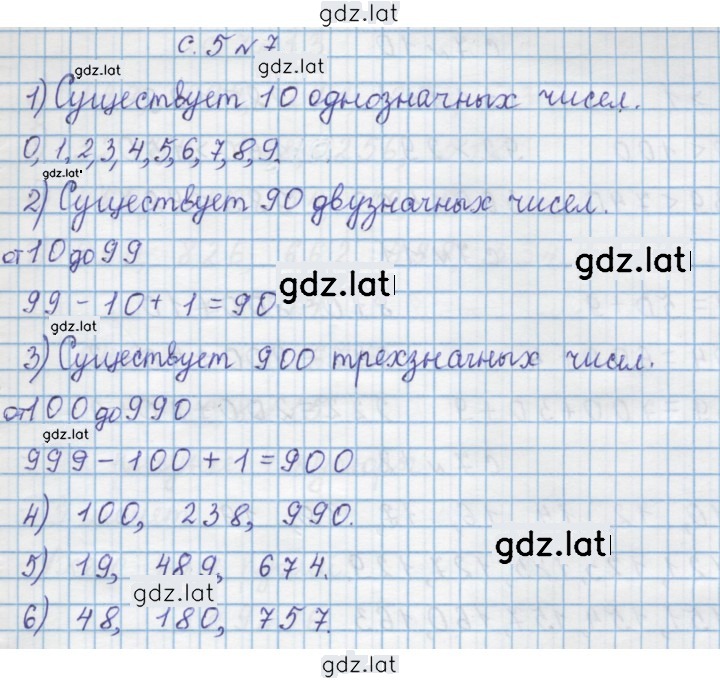 gdz.lat
с. 5 № 7
gdz.lat
gdz.lat
1) Существует 10 однозначных чисел.
0, 1, 2, 3, 4, 5, 6, 7, 8, 9.
gdz.lat
2) Существует 90 двузначных чисел.
от 10 до 99
gdz.lat
gdz.lat
99 - 10 + 1 = 90
gdz.lat
3) Существует 900 трехзначных чисел.
от 100 до 990
gdz.lat
999 - 100 + 1 = 900
4) 100, 238, 990.
gdz.lat
5) 19, 489, 674.
gdz.lat
6) 48, 180, 757.
gdz.lat